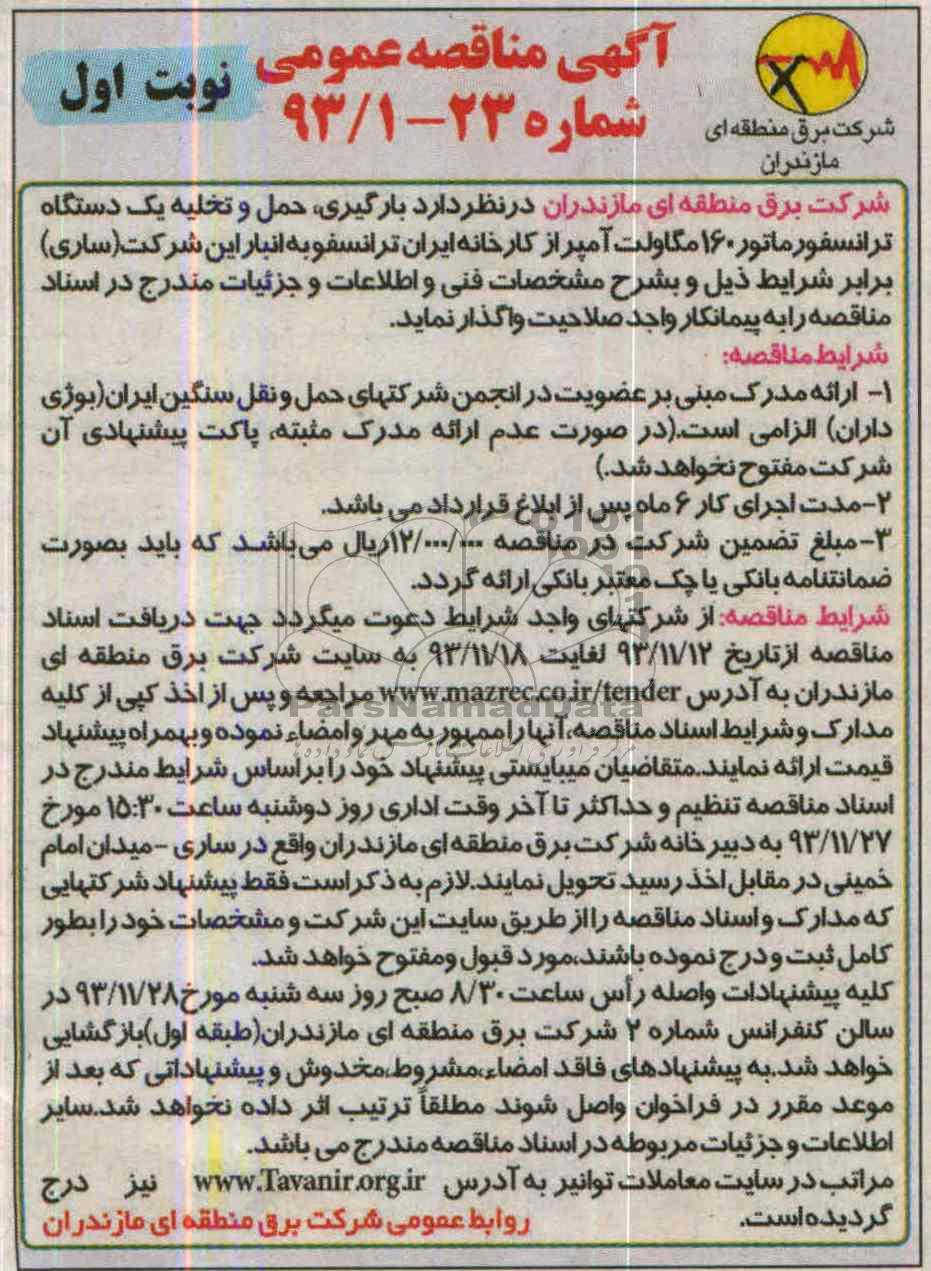 آگهی مناقصه عمومی
شماره ۲۳-۹۳/۱
نوبت اول
شرکت برق منطقه ای
مازندران
شرکت برق منطقه ای مازندران در نظر دارد بارگیری، حمل و تخلیه یک دستگاه
ترانسفورماتور ۱۶۰ مگاولت آمپر از کارخانه ایران ترانسفو به انبار این شرکت(ساری)
برابر شرایط ذیل و بشرح مشخصات فنی و اطلاعات و جزئیات مندرج در اسناد
مناقصه را به پیمانکار واجد صلاحیت واگذار نماید.
شرایط مناقصه:
۱- ارائه مدرک مبنی بر عضویت در انجمن شرکتهای حمل و نقل سنگین ایران(بوژی
داران) الزامی است.(در صورت عدم ارائه مدرک مثبته، پاکت پیشنهادی آن
شرکت مفتوح نخواهد شد.)
۲-مدت اجرای کار ۶ ماه پس از ابلاغ قرارداد می باشد.
۳-مبلغ تضمین شرکت در مناقصه ۱۲/۰۰۰/۰۰۰ریال می‌باشد که باید بصورت
ضمانتنامه بانکی یا چک معتبر بانکی ارائه گردد.
شرایط مناقصه: از شرکتهای واجد شرایط دعوت میگردد جهت دریافت اسناد
مناقصه ازتاریخ ۹۳/۱۱/۱۲ لغایت ۹۳/۱۱/۱۸ به سایت شرکت برق منطقه ای
مازندران به آدرس www.mazrec.co.ir/tender مراجعه و پس از اخذ کپی از کلیه
مدارک و شرایط اسناد مناقصه، آنها را ممهور به مهر و امضاء نموده و بهمراه پیشنهاد
قیمت ارائه نمایند.متقاضیان میبایستی پیشنهاد خود را براساس شرایط مندرج در
اسناد مناقصه تنظیم و حداکثر تا آخر وقت اداری روز دوشنبه ساعت ۱۵:۳۰ مورخ
۹۳/۱۱/۲۷ به دبیرخانه شرکت برق منطقه ای مازندران واقع در ساری -میدان امام
خمینی در مقابل اخذ رسید تحویل نمایند.لازم به ذکر است فقط پیشنهاد شرکتهایی
که مدارک و اسناد مناقصه را از طریق سایت این شرکت و مشخصات خود را بطور
کامل ثبت و درج نموده باشند،مورد قبول ومفتوح خواهد شد.
کلیه پیشنهادات واصله رأس ساعت ۸/۳۰ صبح روز سه شنبه مورخ۹۳/۱۱/۲۸ در
سالن کنفرانس شماره ۲ شرکت برق منطقه ای مازندران(طبقه اول)بازگشایی
خواهد شد.به پیشنهادهای فاقد امضاء،مشروط،مخدوش و پیشنهاداتی که بعد از
موعد مقرر در فراخوان واصل شوند مطلقاً ترتیب اثر داده نخواهد شد.سایر
اطلاعات و جزئیات مربوطه در اسناد مناقصه مندرج می باشد.
مراتب در سایت معاملات توانیر به آدرس www.Tavanir.org.ir نیز درج
گردیده است.
روابط عمومی شرکت برق منطقه ای مازندران
ParsNamadData